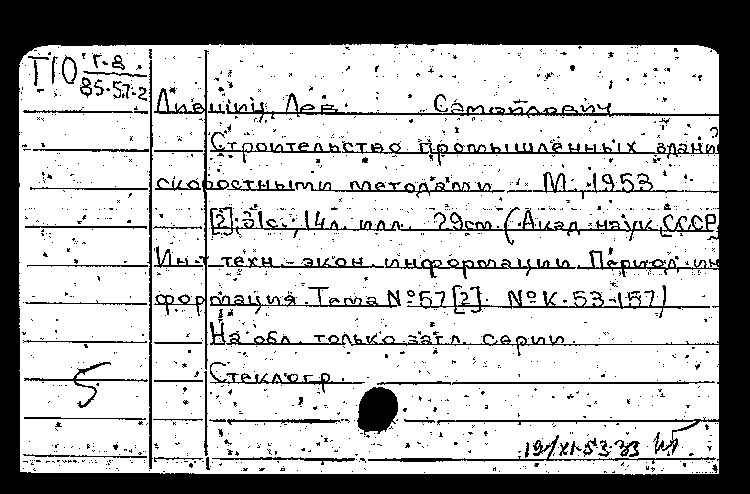 Г10 Г-8
85-57-2
Лившиц, Лев Самойлович
Строительство промышленных здани
скоростными методами. М., 1953
[2], 31с., 14л. илл. 29см. (Акад. наук СССР
Ин-т техн.-экон. информации. Период. ин
формация. Тема №57 [2]. № К-53-157)
На обл. только загл. серии.
Стеклогр.
5
19/XI-53-33